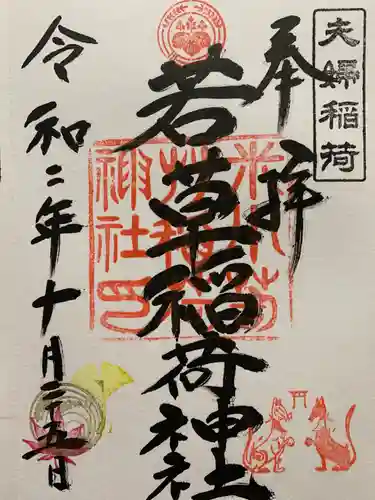 夫婦稲荷
奉拝
若草稲荷神社
令和二年十月二十五日